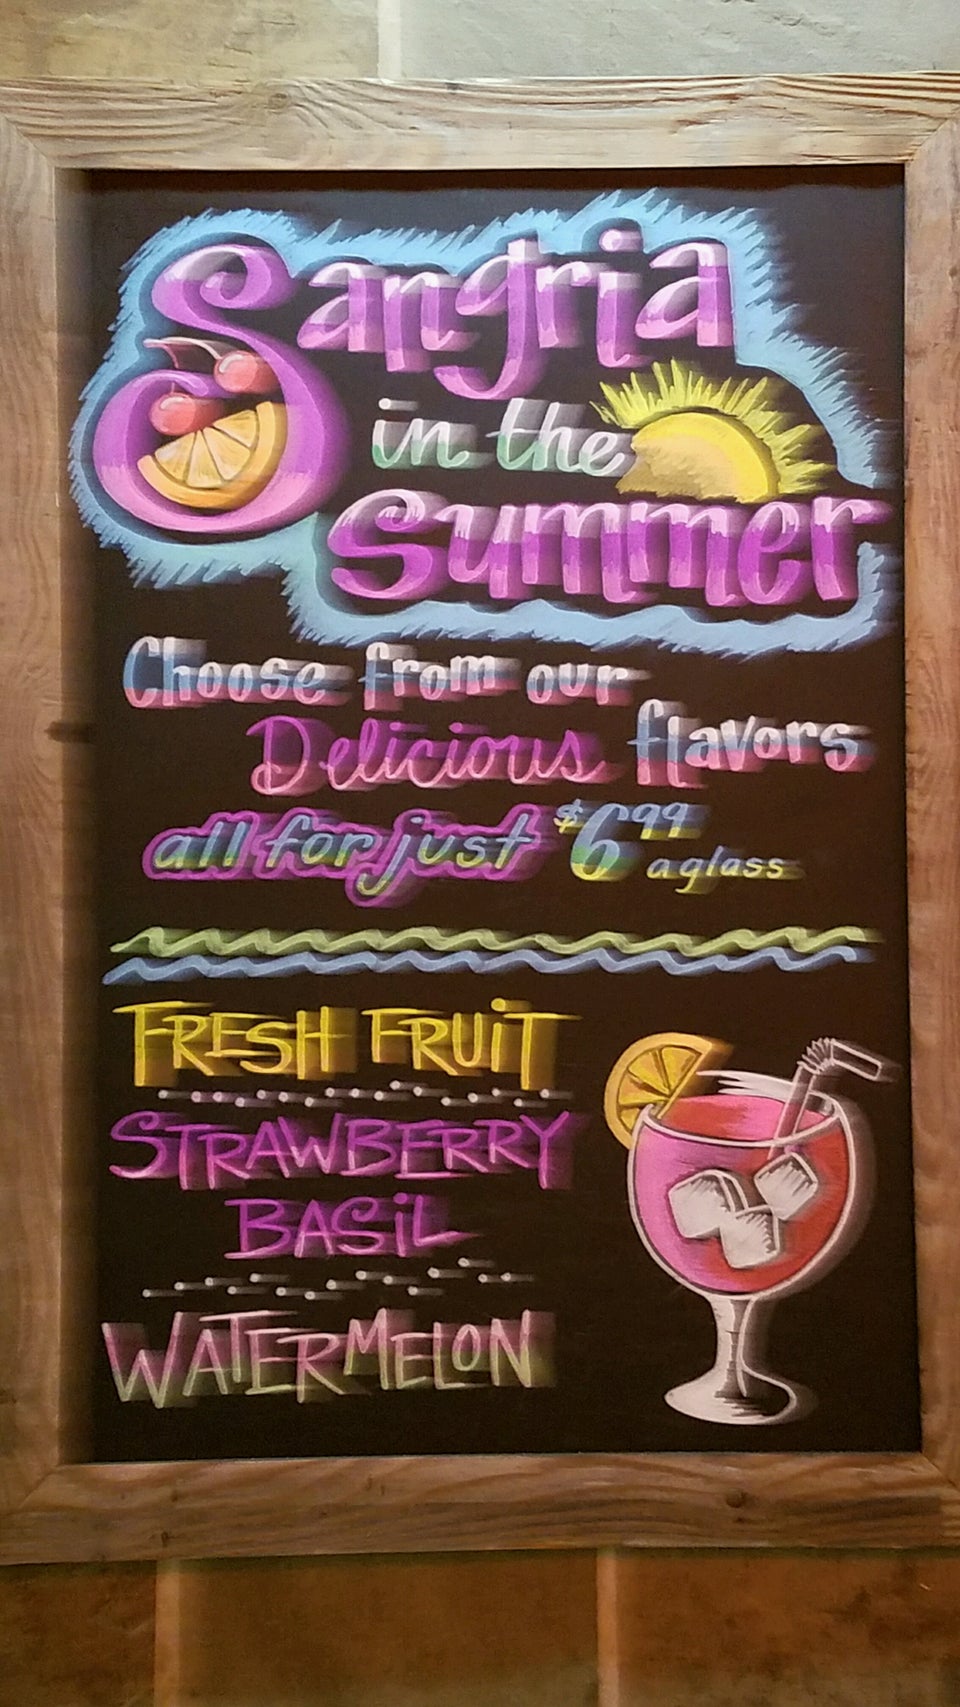 Sangria
in the
Summer
Choose from our
Delicious flavors
all for just $6.99 a glass
FRESH FRUiT
STRAWBERRY
BASiL
WATERMELON